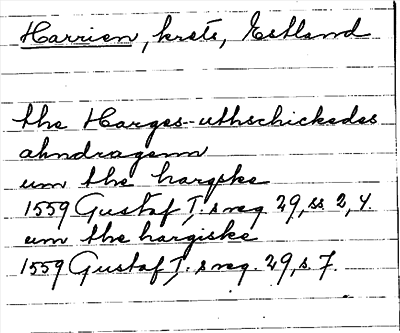 Harrien, krets, Estland
the Harges-uthschickedes
ahndragenn
um the hargske
1559 Gustaf I:s reg. 29, ss 2, 4.
um the hargiske
1559 Gustaf I:s reg. 29, s. 7.